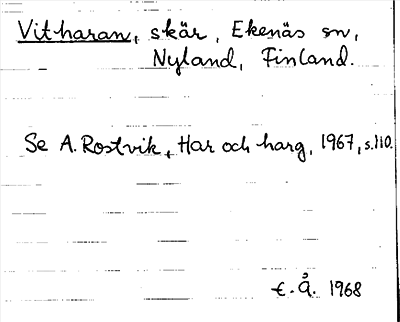 Vitharan, skär, Ekenäs sn,
Nyland, Finland.
Se A. Rostvik, Har och harg, 1967, s. 110.
E. Å. 1968